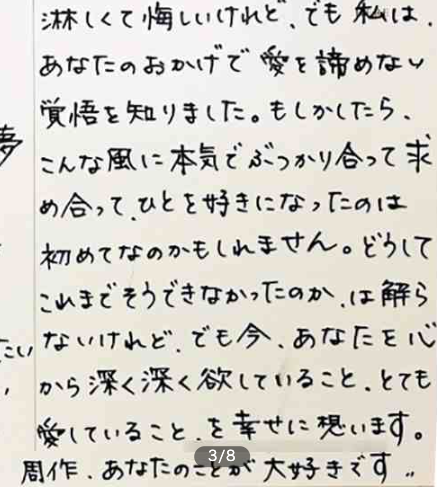 淋しくて悔しいけれど、でも私は、
あなたのおかげで愛を諦めない
覚悟を知りました。もしかしたら、
こんな風に本気でぶつかり合って求
め合って、ひとを好きになったのは
初めてなのかもしれません。どうして
これまでそうできなかったのか、は解ら
ないけれど、でも今、あなたを心
から深く深く欲していること、とても
愛していること、を幸せに想います。
周作、あなたのことが大好きです。
夢
たい
3/8